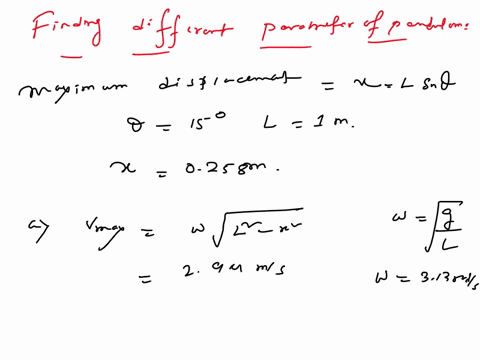 Finding different parameter of pendulum:
maximum displacement = x = L sinθ
θ = 15° L = 1 m.
x = 0.258m.
a) Vmax = ω √(L² - x²) ω = √(g/L)
= 2.94 m/s ω = 3.13 rad/s